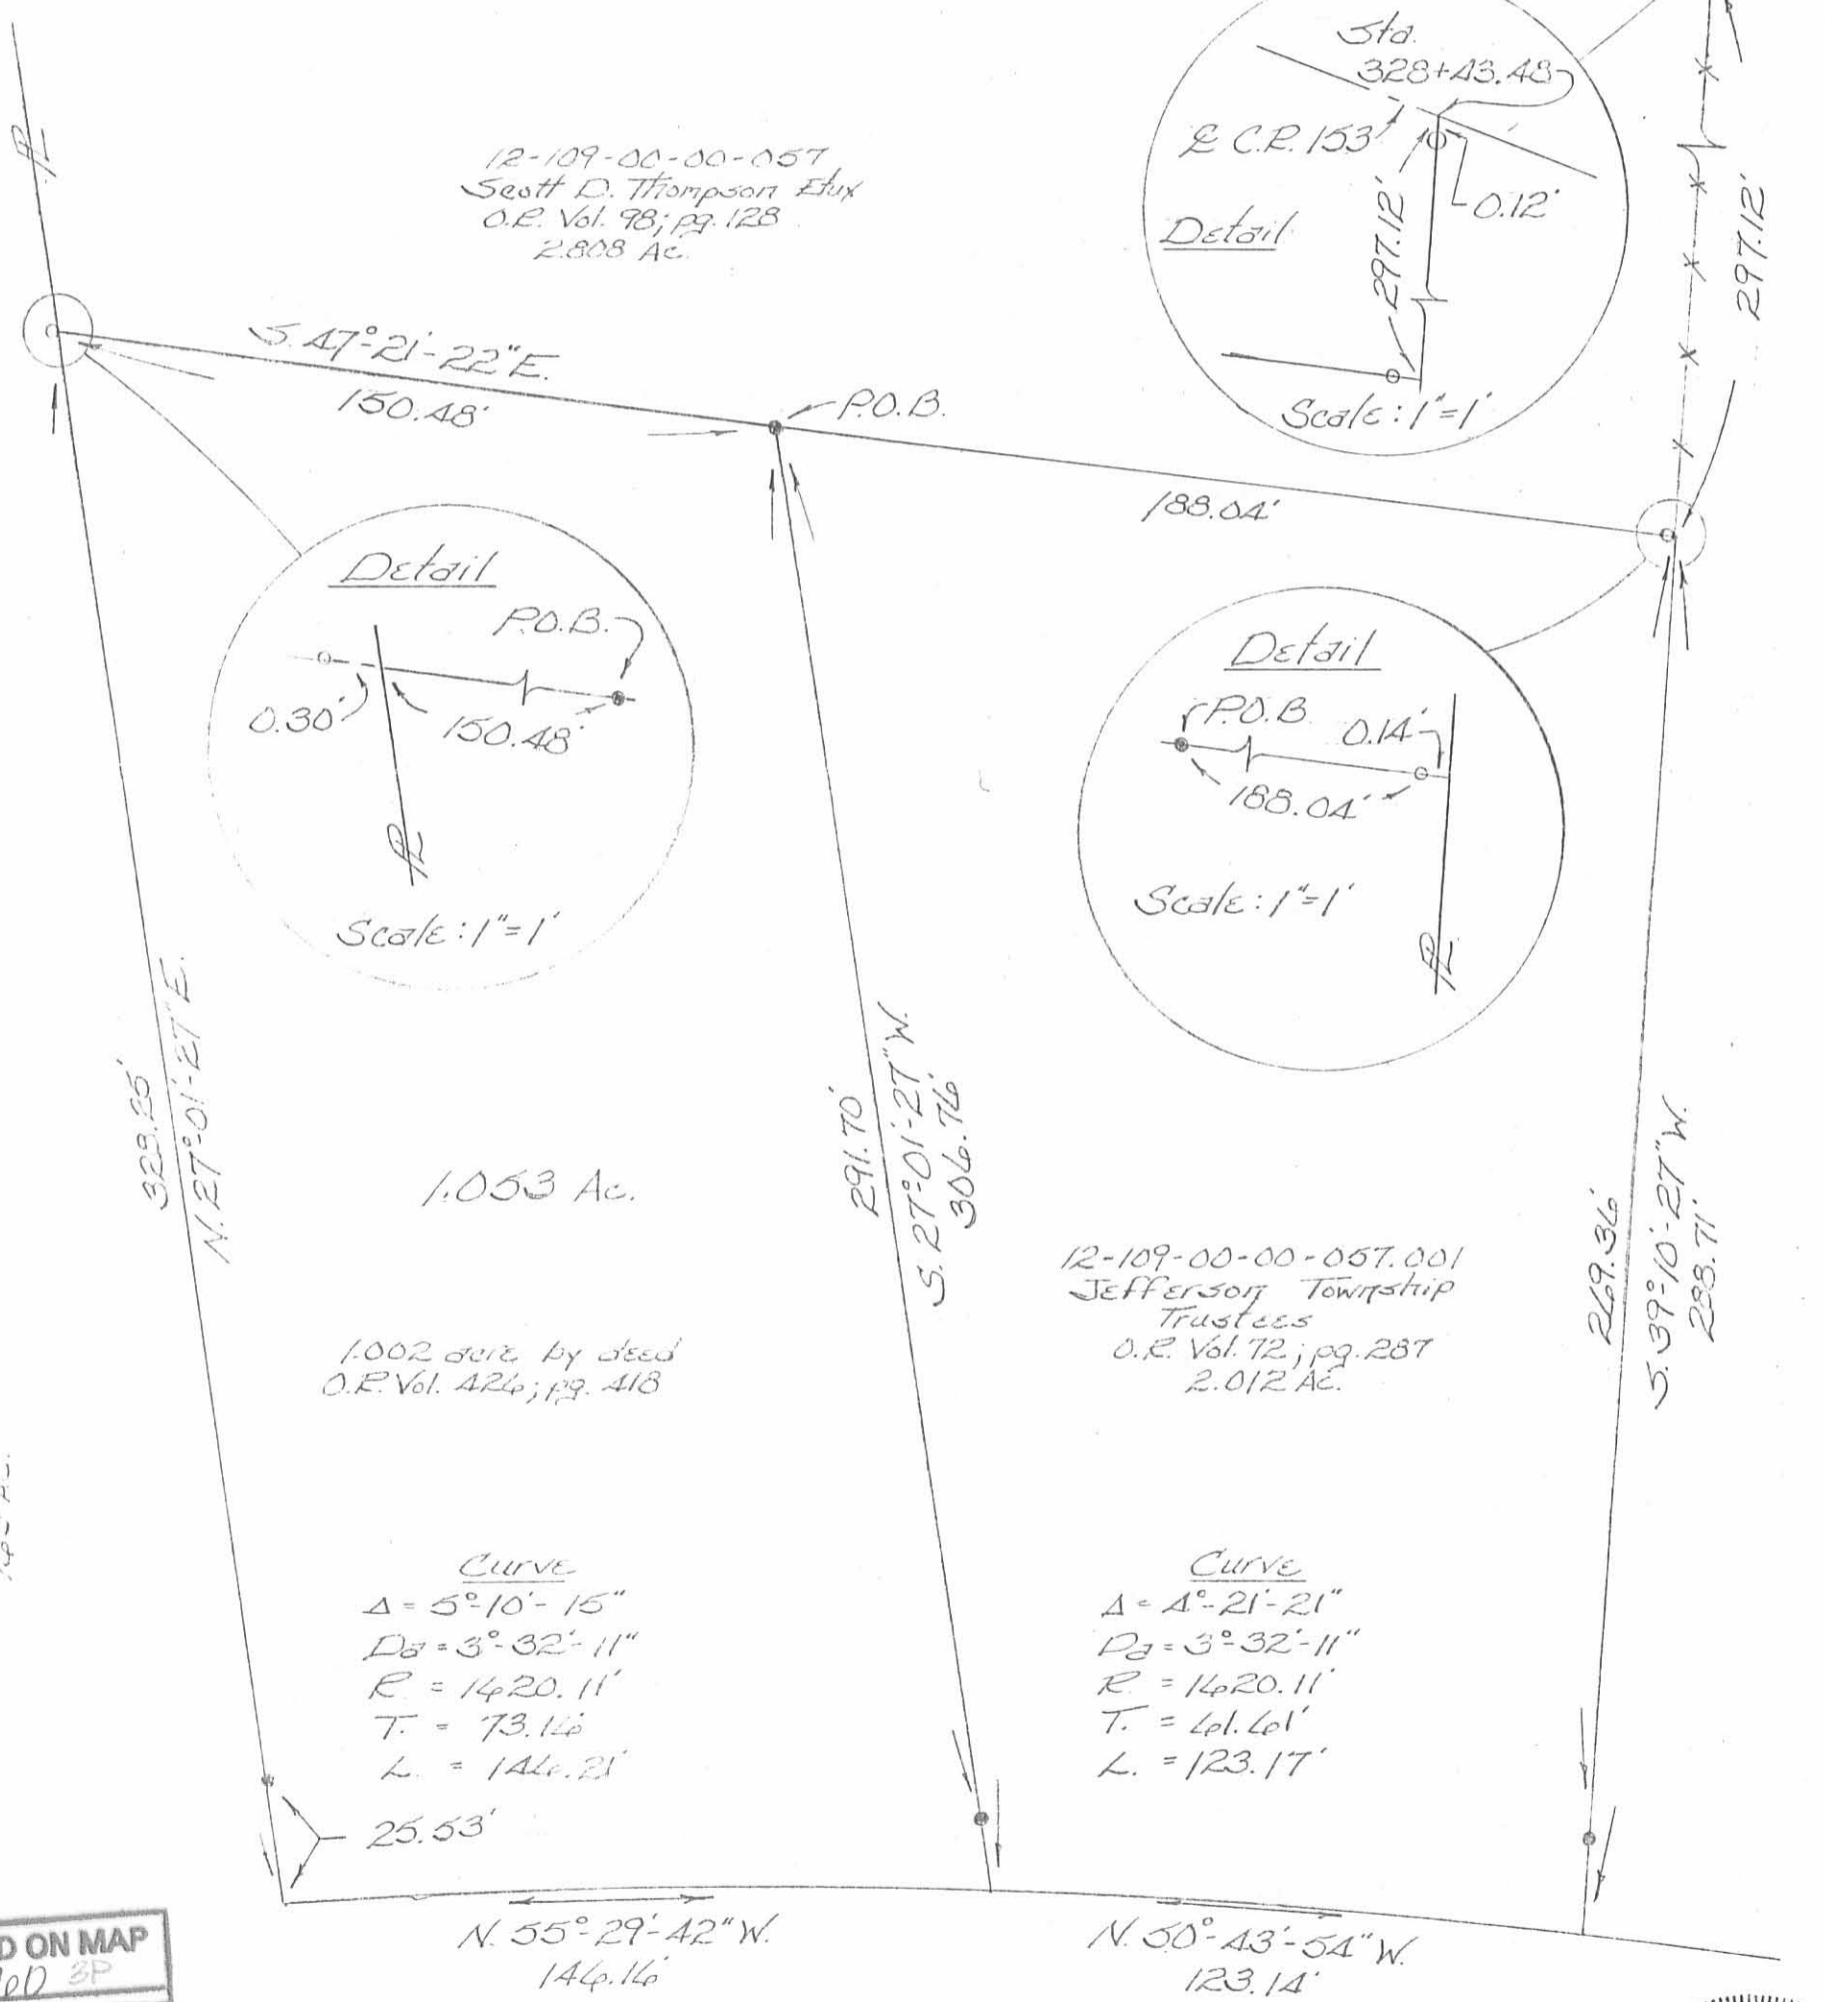 Sta.
328+43.48
℄ C.R. 153
297.12'
0.12'
Detail
Scale: 1"=1'
297.12'
12-109-00-00-057
Scott D. Thompson Etux
O.R. Vol. 98; pg. 128
2.808 Ac.
S. 47°-21'-22" E.
150.48'
P.O.B.
188.04'
Detail
P.O.B.
0.30'
150.48'
Scale: 1"=1'
Detail
P.O.B.
0.14'
188.04'
Scale: 1"=1'
323.25'
N. 27°-01'-27" E.
291.70'
S. 27°-01'-27" W.
306.76'
269.36'
S. 39°-10'-27" W.
288.71'
1.053 Ac.
1.002 acre by deed
O.R. Vol. 426; pg. 418
12-109-00-00-057.001
Jefferson Township
Trustees
O.R. Vol. 72; pg. 287
2.012 Ac.
Curve
Δ = 5°-10'-15"
Da = 3°-32'-11"
R = 1620.11'
T. = 73.16
L. = 146.21'
Curve
Δ = 4°-21'-21"
Da = 3°-32'-11"
R. = 1620.11'
T. = 61.61'
L. = 123.17'
25.53'
N. 55°-29'-42" W.
146.16'
N. 50°-43'-54" W.
123.14'
D ON MAP
3P